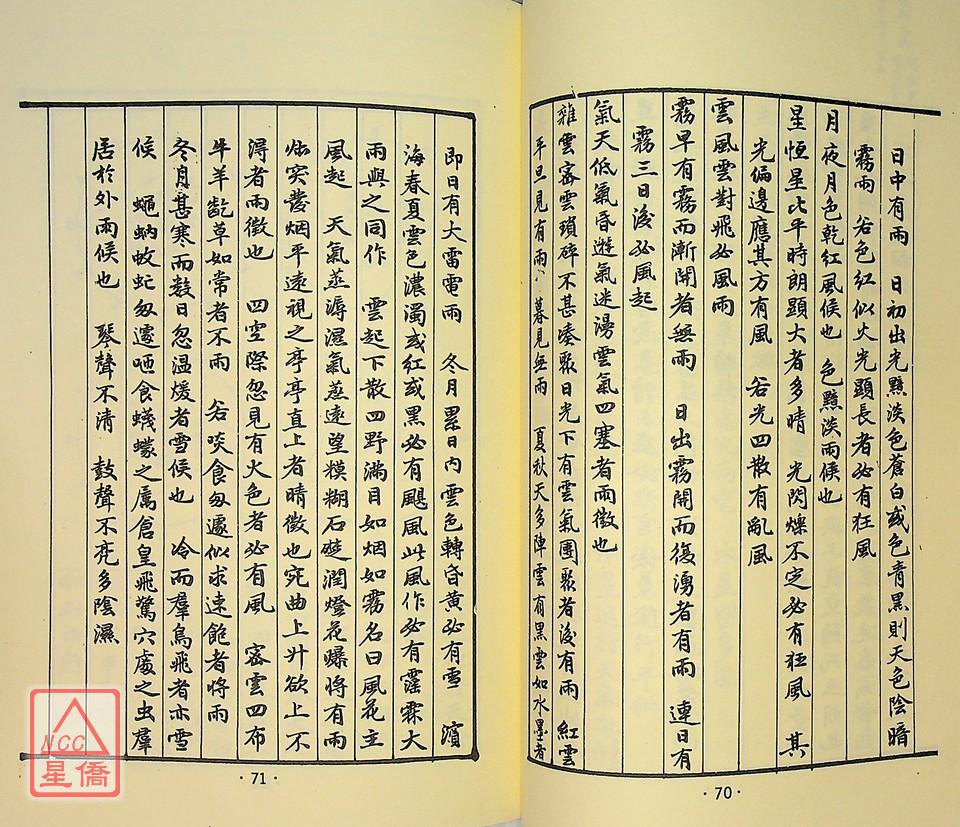 日中有雨　日初出光黯淡色蒼白或色青黑則天色陰暗
霧雨　若色紅似火光顕長者必有狂風
月夜月色乾紅風候也　色黯淡雨候也
星恒星比平時朗顕大者多晴　光閃爍不定必有狂風　其
光偏邊應其方有風　若光四散有亂風
雲風雲對飛必風雨
霧早有霧而漸開者無雨　日出霧開而復湧者有雨　連日有
霧三日後必風起
氣天低氣昏遊氣迷漫雲氣四塞者雨徵也
雜雲密雲瑣碎不甚湊聚日光下有雲氣團聚者後有雨　紅雲
平旦見有雨、暮見無雨　夏秋天多陣雲有黑雲如水墨者
·70·
即日有大雷電雨　冬月累日內雲色轉昏黃必有雪　濱
海春夏雲色濃濁或紅或黑必有颶風此風作必有霪霖大
雨與之同作　雲起下散四野滿目如烟如霧名曰風花主
風起　天氣蒸溽濕氣蒸遠望糢糊石礎潤燈花爆將有雨
灶突發烟平遠視之亭亭直上者晴徵也宛曲上升欲上不
得者雨徵也　四空際忽見有火色者必有風　密雲四布
牛羊齕草如常者不雨　若啖食匆遽似求速飽者將雨
冬月甚寒而数日忽温煖者雪候也　冷而羣鳥飛者亦雪
候　蠅蚋蚊虻匆遽咂食蟻蠓之厲倉皇飛驚穴處之虫羣
居於外雨候也　琴聲不清　鼓聲不亮多陰濕
·71·
NCC
星僑